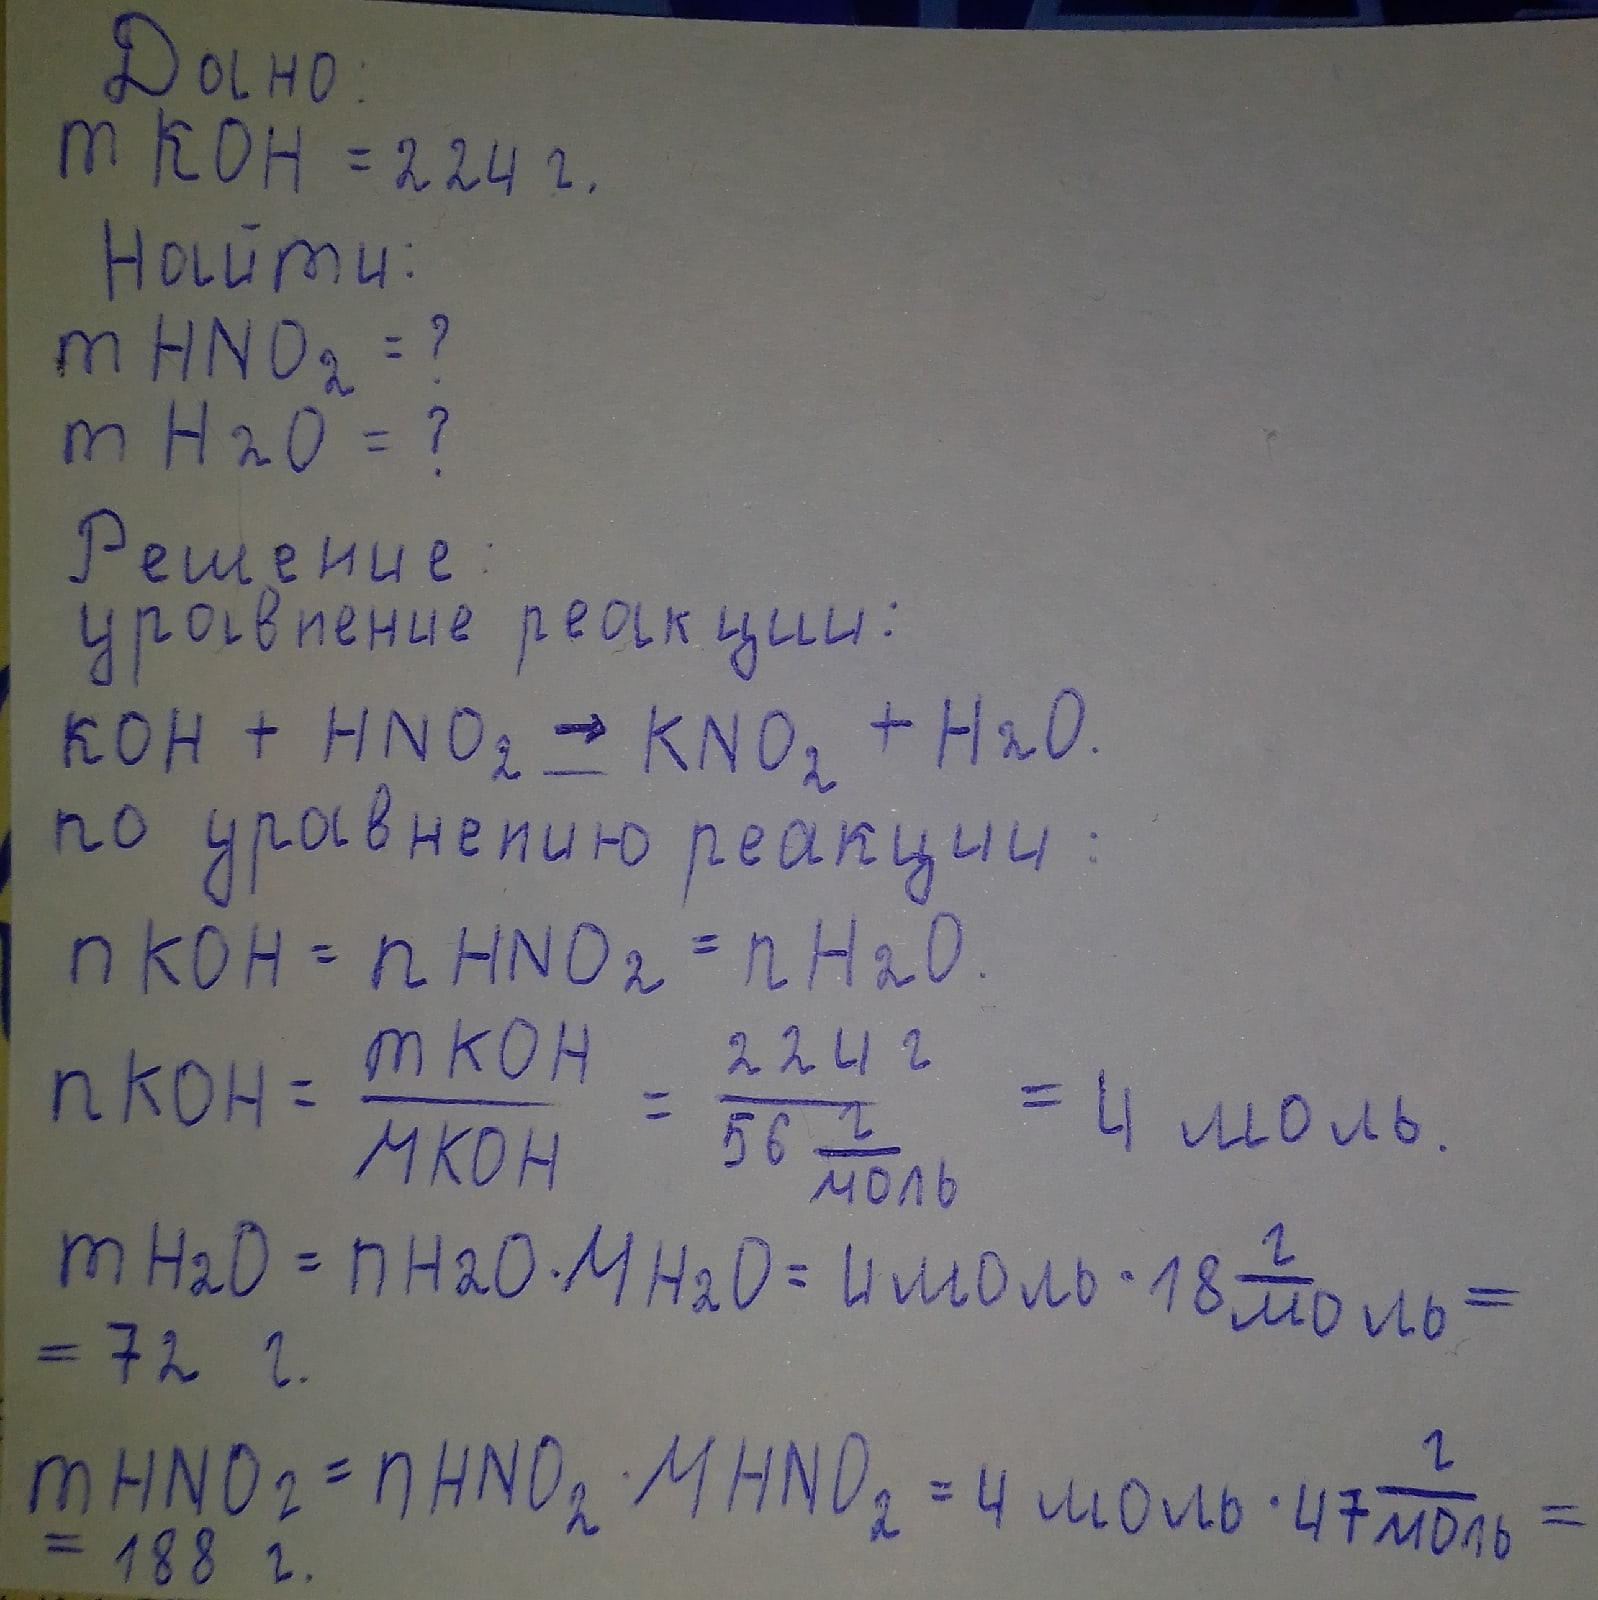 Дано:
m KOH = 224 г.
Найти:
m HNO₂ = ?
m H₂O = ?
Решение:
уравнение реакции:
KOH + HNO₂ ⇒ KNO₂ + H₂O.
по уравнению реакции:
n KOH = n HNO₂ = n H₂O.
n KOH = m KOH / M KOH = 224 г / 56 г/моль = 4 моль.
m H₂O = n H₂O · M H₂O = 4 моль · 18 г/моль =
= 72 г.
m HNO₂ = n HNO₂ · M HNO₂ = 4 моль · 47 г/моль =
= 188 г.